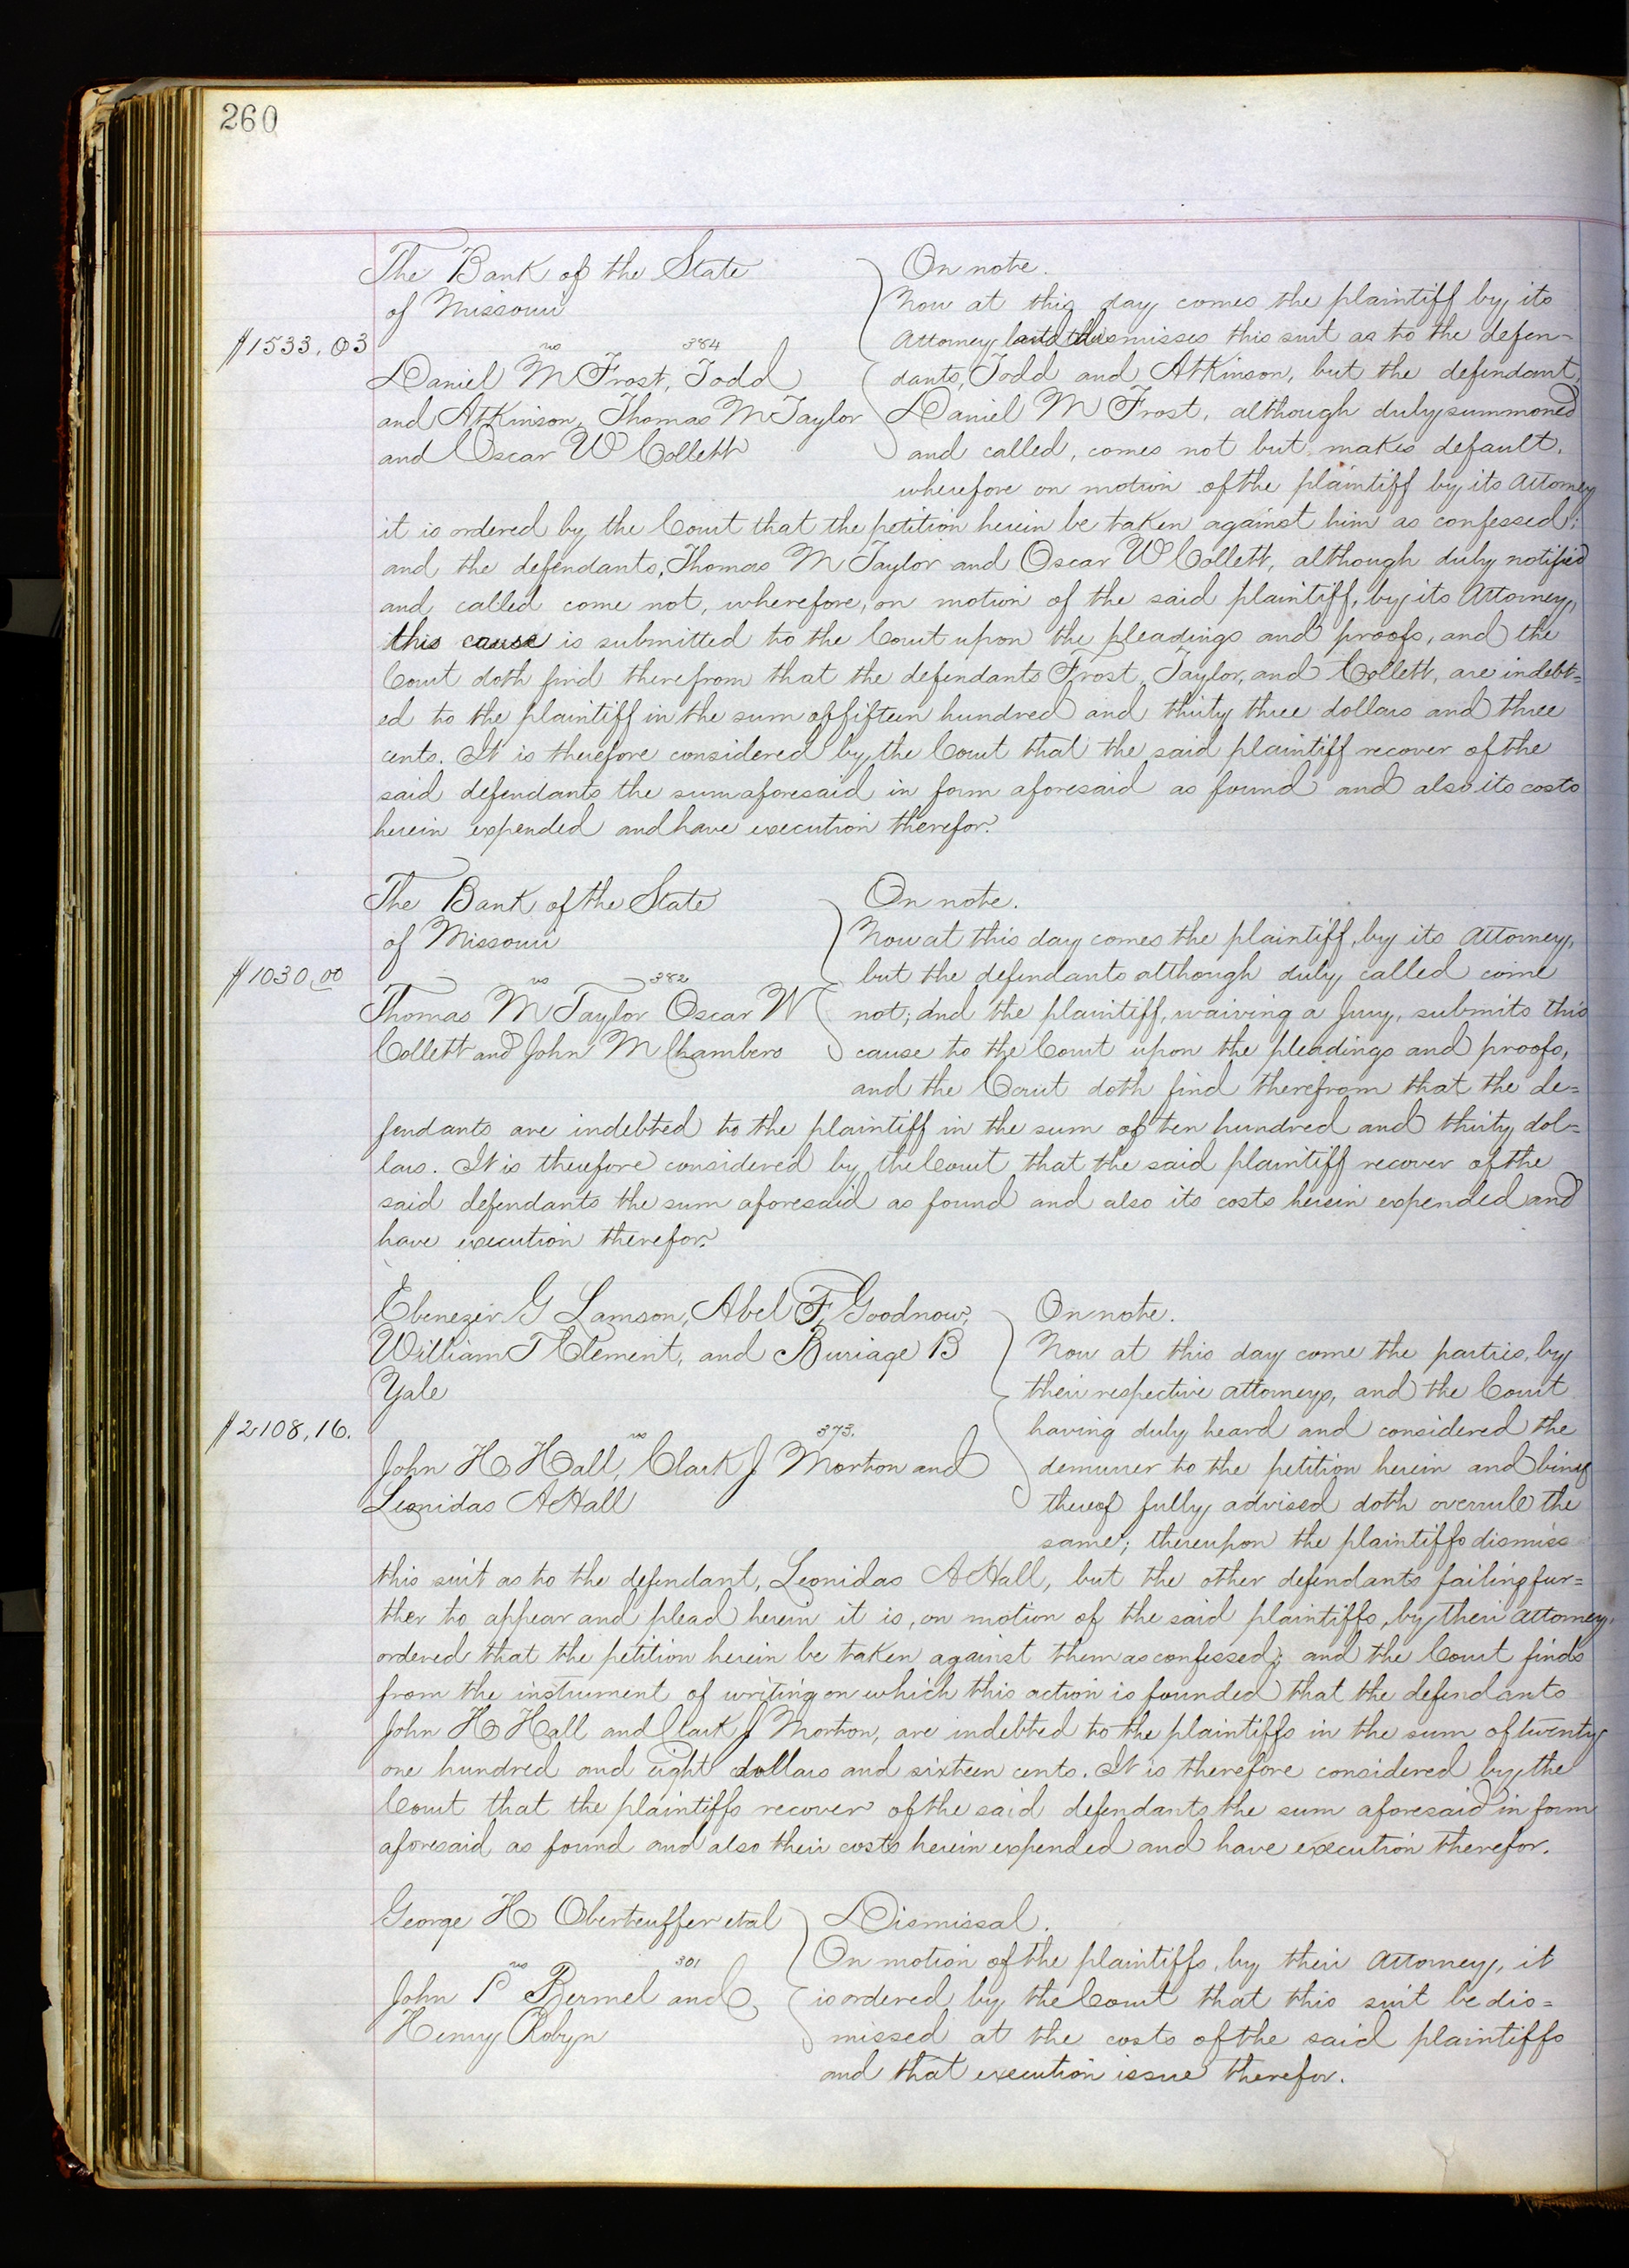 260
The Bank of the State
of Missouri
$1533.03
vs 384
Daniel M Frost, Todd
and Atkinson, Thomas M Taylor
and Oscar W Collett
On note.
Now at this day comes the plaintiff by its
Attorney and dismisses this suit as to the defen-
dants, Todd and Atkinson, but the defendant,
Daniel M Frost, although duly summoned
and called, comes not but makes default.
wherefore on motion of the plaintiff by its Attorney
it is ordered by the Court that the petition herein be taken against him as confessed;
and the defendants, Thomas M Taylor and Oscar W Collett, although duly notified
and called come not, wherefore, on motion of the said plaintiff, by its Attorney,
this cause is submitted to the Court upon the pleadings and proofs, and the
Court doth find therefrom that the defendants Frost, Taylor, and Collett, are indebt=
ed to the plaintiff in the sum of fifteen hundred and thirty three dollars and three
cents. It is therefore considered by the Court that the said plaintiff recover of the
said defendants the sum aforesaid in form aforesaid as found and also its costs
herein expended and have execution therefor.
The Bank of the State
of Missouri
$1030.00
vs 382
Thomas M Taylor Oscar W
Collett and John M Chambers
On note.
Now at this day comes the plaintiff, by its Attorney,
but the defendants although duly called come
not; and the plaintiff, waiving a Jury, submits this
cause to the Court upon the pleadings and proofs,
and the Court doth find therefrom that the de=
fendants are indebted to the plaintiff in the sum of ten hundred and thirty dol=
lars. It is therefore considered by the Court that the said plaintiff recover of the
said defendants the sum aforesaid as found and also its costs herein expended and
have execution therefor.
Ebenezer G Lamson, Abel F. Goodnow,
William T Clement, and Buriage B
Yale
$2108,16.
vs 373.
John H Hall, Clark J Morton and
Leonidas A Hall
On note.
Now at this day come the parties, by
their respective attorneys, and the Court
having duly heard and considered the
demurrer to the petition herein and being
thereof fully advised doth overrule the
same; thereupon the plaintiffs dismiss
this suit as to the defendant, Leonidas A Hall, but the other defendants failing fur=
ther to appear and plead herein it is, on motion of the said plaintiffs, by their Attorney,
ordered that the petition herein be taken against them as confessed; and the Court finds
from the instrument of writing on which this action is founded that the defendants
John H Hall and Clark J Morton, are indebted to the plaintiffs in the sum of twenty
one hundred and eight dollars and sixteen cents. It is therefore considered by the
Court that the plaintiffs recover of the said defendants the sum aforesaid in form
aforesaid as found and also their costs herein expended and have execution therefor.
George H Oberteuffer et al
vs 301
John P Bermel and
Henry Robyn
Dismissal.
On motion of the plaintiffs, by their Attorney, it
is ordered by the Court that this suit be dis=
missed at the costs of the said plaintiffs
and that execution issue therefor.